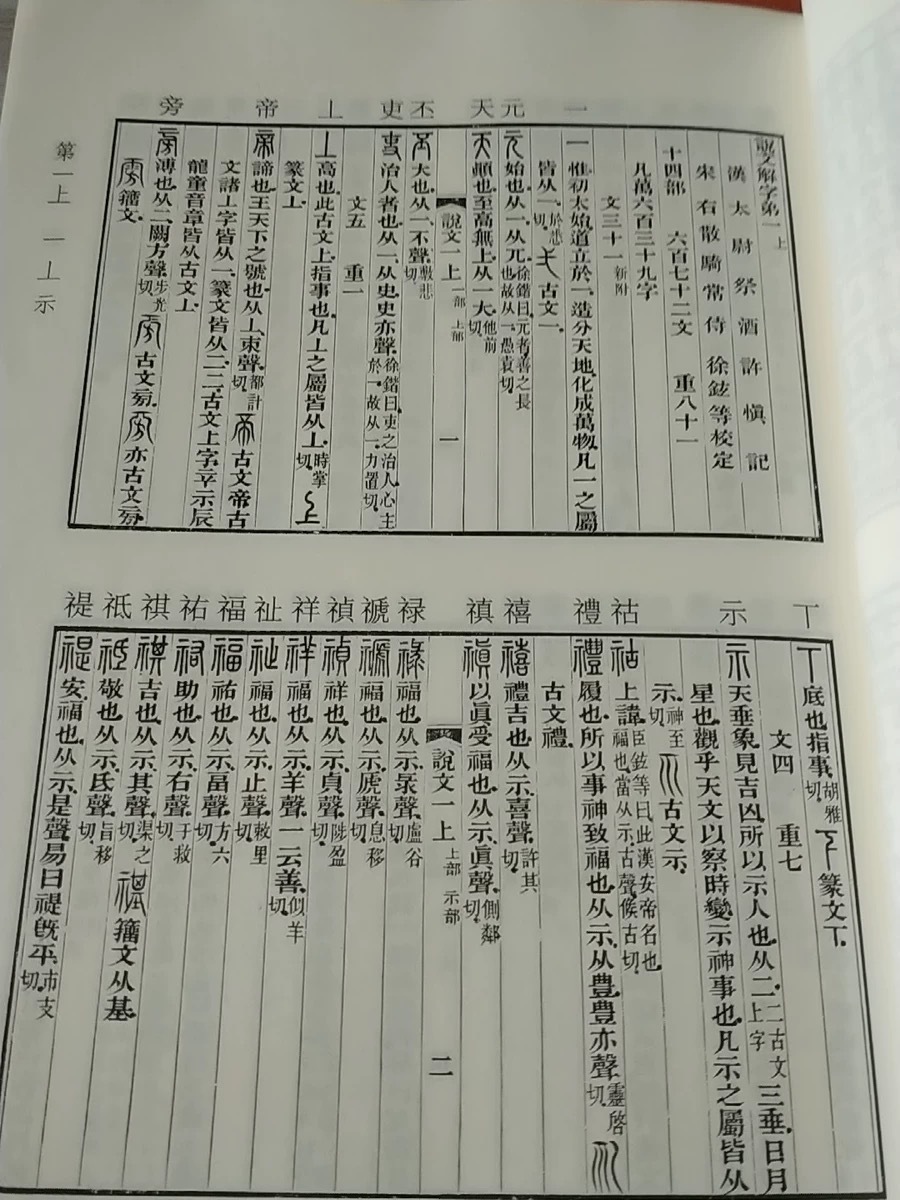 一 元 天 丕 吏 丄 帝 旁
說文解字弟一上
漢太尉祭酒許慎記
宋右散騎常侍徐鉉等校定
十四部 六百七十二文 重八十一
凡萬六百三十九字
文三十一新附
一惟初太始道立於一造分天地化成萬物凡一之屬
皆从一於悉切弌古文一
元始也从一从兀徐鍇曰元者善之長也故从一愚袁切
天顛也至高無上从一大他前切
說文一上 一部 上部 一
丕大也从一不聲敷悲切
吏治人者也从一从史史亦聲徐鍇曰吏之治人心主於一故从一力置切
文五 重一
丄高也此古文上指事也凡丄之屬皆从丄時掌切上
篆文丄
帝諦也王天下之號也从丄朿聲都計切帝古文帝古
文諸丄字皆从一篆文皆从二二古文上字䇂示辰
龍童音章皆从古文丄
旁溥也从二闕方聲步光切㫄古文㫄㫄亦古文㫄
雱籒文
第一上 一丄示
丅 示 祜 禮 禧 禛 禄 禠 禎 祥 祉 福 祐 祺 祗 禔
丅底也指事胡雅切下篆文丅
文四 重七
示天垂象見吉凶所以示人也从二二古文上字三垂日月
星也觀乎天文以察時變示神事也凡示之屬皆从
示神至切古文示
祜上諱臣鉉等曰此漢安帝名也福也當从示古聲候古切
禮履也所以事神致福也从示从豊豊亦聲靈啓切
古文禮
禧禮吉也从示喜聲許其切
禛以眞受福也从示眞聲側鄰切
說文一上 上部 示部 二
祿福也从示彔聲盧谷切
禠福也从示虒聲息移切
禎祥也从示貞聲陟盈切
祥福也从示羊聲一云善似羊切
祉福也从示止聲敕里切
福祐也从示畐聲方六切
祐助也从示右聲于救切
祺吉也从示其聲渠之切禥籒文从基
祗敬也从示氐聲旨移切
禔安福也从示是聲易曰禔旣平市支切